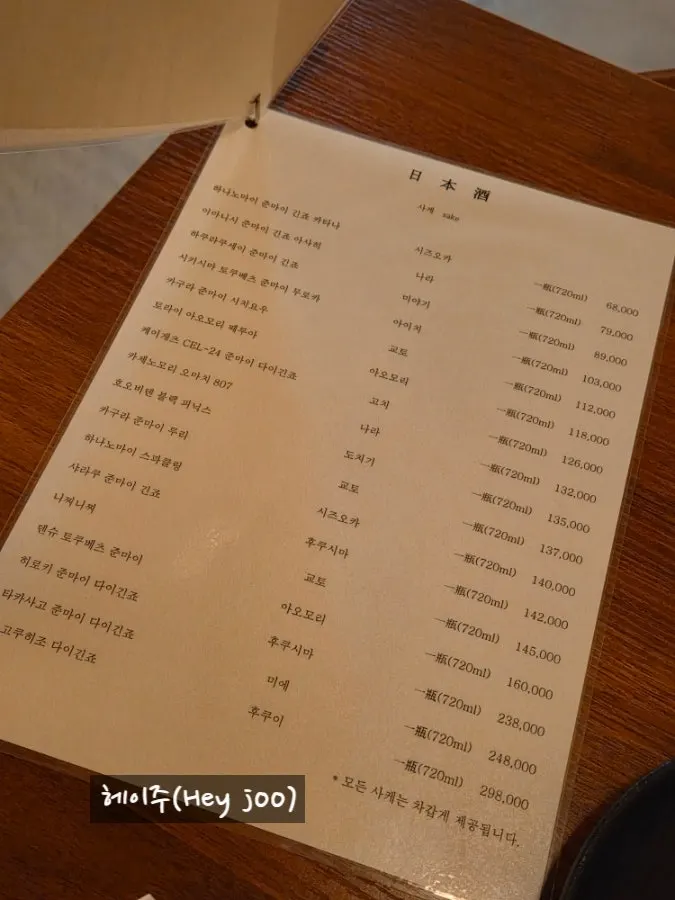 日本酒
사케 sake
하나노마이 준마이 긴죠 카타나 시즈오카 一瓶(720ml) 68,000
이마니시 준마이 긴죠 아사히 나라 一瓶(720ml) 79,000
하쿠라쿠세이 준마이 긴죠 미야기 一瓶(720ml) 89,000
시키시마 토쿠베츠 준마이 무로카 아이치 一瓶(720ml) 103,000
카구라 준마이 시치요우 교토 一瓶(720ml) 112,000
아오모리 아오모리 一瓶(720ml) 118,000
케이게츠 CEL-24 준마이 다이긴죠 고치 一瓶(720ml) 126,000
카제노모리 오마치 807 나라 一瓶(720ml) 132,000
호오비덴 블랙 피닉스 도치기 一瓶(720ml) 135,000
카구라 준마이 루리 교토 一瓶(720ml) 137,000
하나노마이 스파클링 시즈오카 一瓶(720ml) 140,000
샤라쿠 준마이 긴죠 후쿠시마 一瓶(720ml) 142,000
니찌니찌 교토 一瓶(720ml) 145,000
덴슈 토쿠베츠 준마이 아오모리 一瓶(720ml) 160,000
히로키 준마이 다이긴죠 후쿠시마 一瓶(720ml) 238,000
타카사고 준마이 다이긴죠 미에 一瓶(720ml) 248,000
다이긴죠 후쿠이 一瓶(720ml) 298,000
* 모든 사케는 차갑게 제공됩니다.
헤이주(Hey joo)